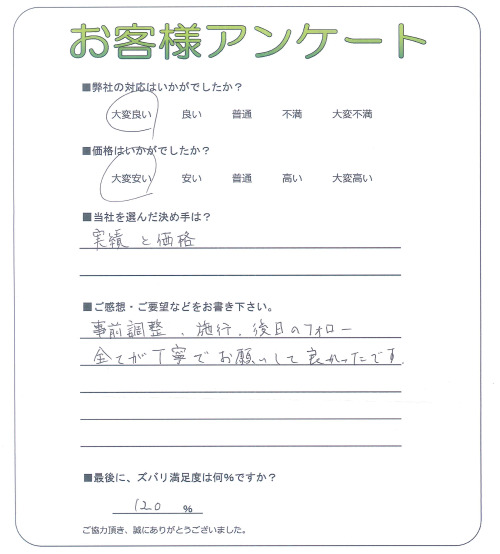 お客様アンケート
■弊社の対応はいかがでしたか？
大変良い 良い 普通 不満 大変不満
■価格はいかがでしたか？
大変安い 安い 普通 高い 大変高い
■当社を選んだ決め手は？
実績と価格
■ご感想・ご要望などをお書き下さい。
事前調整、施行、後日のフォロー
全てが丁寧でお願いして良かったです.
■最後に、ズバリ満足度は何%ですか？
120 %
ご協力頂き、誠にありがとうございました。